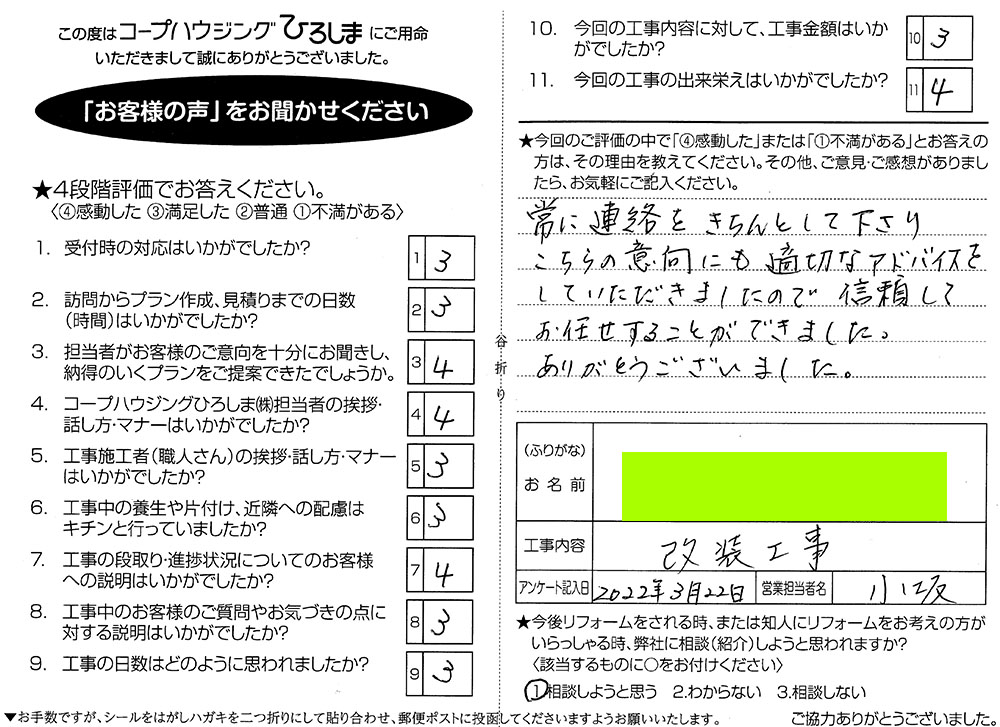 この度はコープハウジングひろしまにご用命
いただきまして誠にありがとうございました。
「お客様の声」をお聞かせください
★4段階評価でお答えください。
〈④感動した ③満足した ②普通 ①不満がある〉
1. 受付時の対応はいかがでしたか?
1 3
2. 訪問からプラン作成、見積りまでの日数
（時間）はいかがでしたか?
2 3
3. 担当者がお客様のご意向を十分にお聞きし、
納得のいくプランをご提案できたでしょうか。
3 4
4. コープハウジングひろしま㈱担当者の挨拶・
話し方・マナーはいかがでしたか?
4 4
5. 工事施工者（職人さん）の挨拶・話し方・マナー
はいかがでしたか?
5 3
6. 工事中の養生や片付け、近隣への配慮は
キチンと行っていましたか?
6 3
7. 工事の段取り・進捗状況についてのお客様
への説明はいかがでしたか?
7 4
8. 工事中のお客様のご質問やお気づきの点に
対する説明はいかがでしたか?
8 3
9. 工事の日数はどのように思われましたか?
9 3
▼お手数ですが、シールをはがしハガキを二つ折りにして貼り合わせ、郵便ポストに投函してくださいますようお願いいたします。
谷折り
10. 今回の工事内容に対して、工事金額はいか
がでしたか?
10 3
11. 今回の工事の出来栄えはいかがでしたか?
11 4
★今回のご評価の中で「④感動した」または「①不満がある」とお答えの
方は、その理由を教えてください。その他、ご意見・ご感想がありまし
たら、お気軽にご記入ください。
常に連絡をきちんとして下さり
こちらの意向にも適切なアドバイスを
していただきましたので信頼して
お任せすることができました。
ありがとうございました。
（ふりがな）
お名前
工事内容 改装工事
アンケート記入日 2022年3月22日 営業担当者名 小坂
★今後リフォームをされる時、または知人にリフォームをお考えの方が
いらっしゃる時、弊社に相談（紹介）しようと思われますか?
〈該当するものに○をお付けください〉
1.相談しようと思う 2.わからない 3.相談しない
ご協力ありがとうございました。